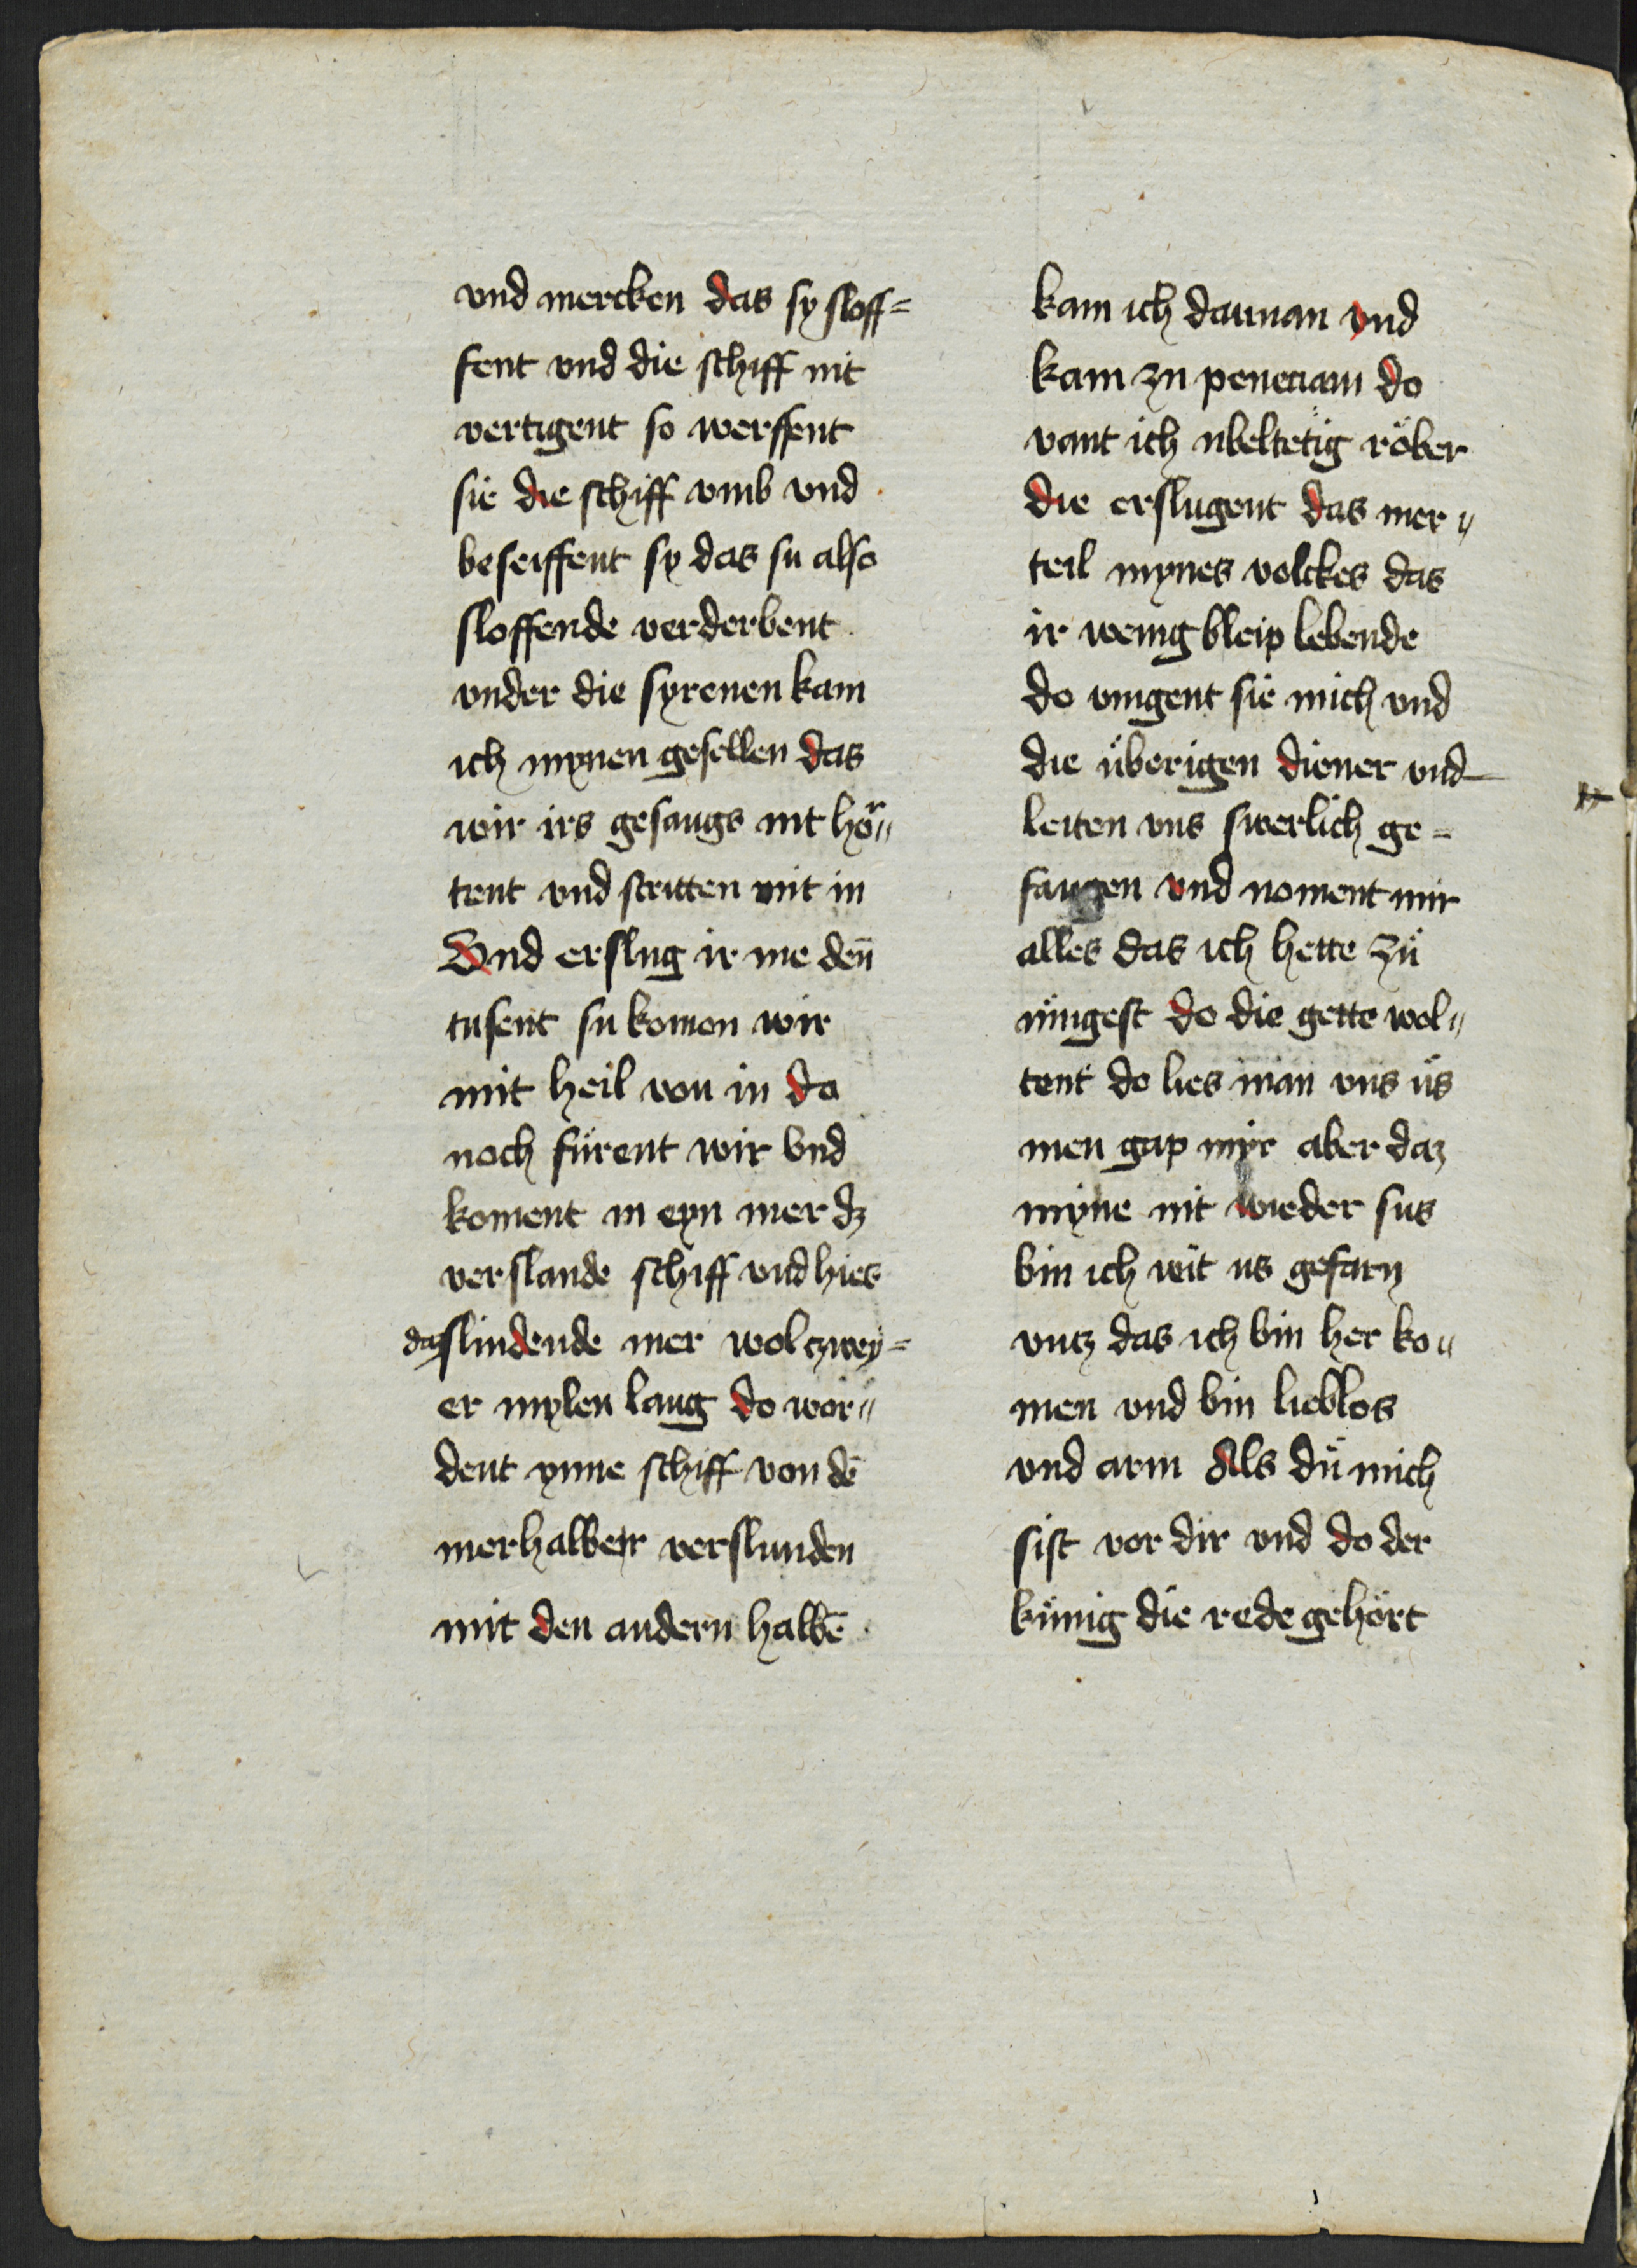 vnd mercken das sy sloff=
fent vnd die schiff nit
vertigent so werffent
sie die schiff vmb vnd
beseiffent sy das su also
sloffende verderbent
vnder die syrenen kam
ich mynen gesellen das
wir irs gesangs nit hör„
tent vnd stritten mit in
Vnd erslug ir me den̄
tusent su komen wir
mit heil von in do
noch fürent wir vnd
koment in eyn mer dz
verslande schiff vnd hies
daz slindende mer wol zwey=
er mylen lang do wor„
dent ynne schiff von dē
merhalben verslunden
mit den andern halbē
kam ich dannan vnd
kam zu peneciam do
vant ich vbeltetig röber
die erslugent das mer„
teil mynes volckes das
ir wenig bleip lebende
do vingent sie mich vnd
die überigen diener vnd
leiten vns swerlich ge=
fangen vnd noment mir
alles das ich hette zü
iüngest do die gette wol„
tent do lies man vns üs
men gap myr aber daz
myne nit wieder sus
bin ich wit us gefarn
vntz das ich bin her ko„
men vnd bin lieblos
vnd arm Als dü mich
sist vor dir vnd do der
künig die rede gehört